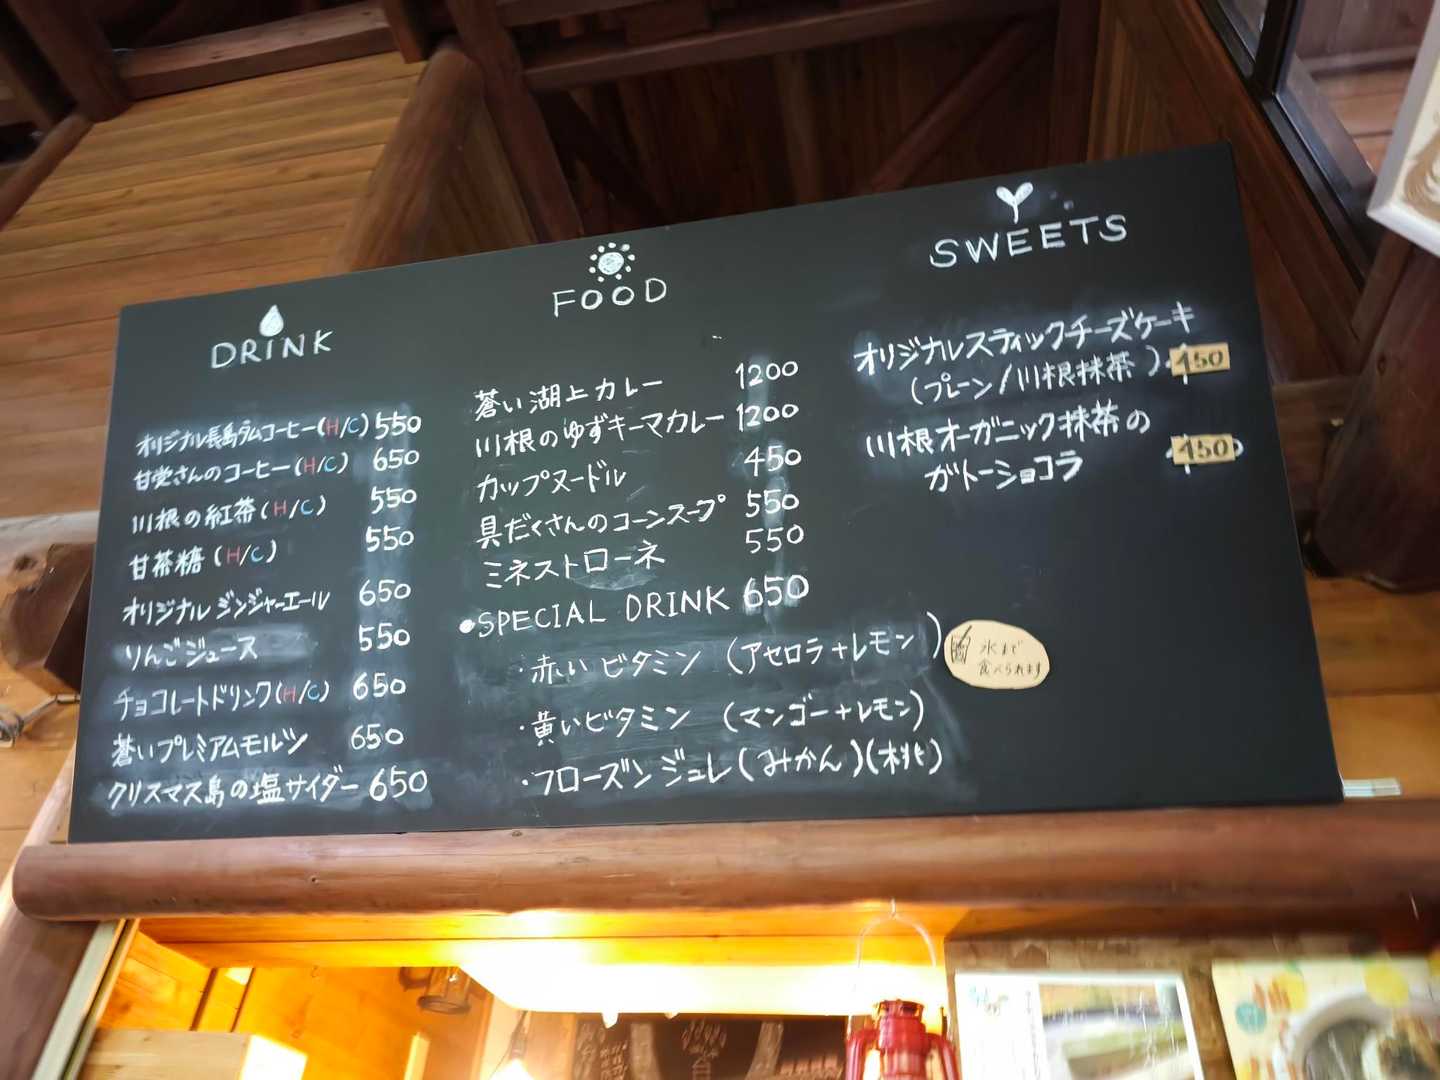 DRINK
オリジナル長島ダムコーヒー(H/C) 550
甘党さんのコーヒー(H/C) 650
川根の紅茶(H/C) 550
甘茶糖(H/C) 550
オリジナルジンジャーエール 650
りんごジュース 550
チョコレートドリンク(H/C) 650
蒼いプレミアムモルツ 650
クリスマス島の塩サイダー 650
FOOD
蒼い湖上カレー 1200
川根のゆずキーマカレー 1200
カップヌードル 450
具だくさんのコーンスープ 550
ミネストローネ 550
●SPECIAL DRINK 650
・赤いビタミン (アセロラ+レモン)
・黄いビタミン (マンゴー+レモン)
・フローズンジュレ(みかん)(桃)
氷まで
食べられます
SWEETS
オリジナルスティックチーズケーキ
(プレーン/川根抹茶) 450
川根オーガニック抹茶の
ガトーショコラ 450